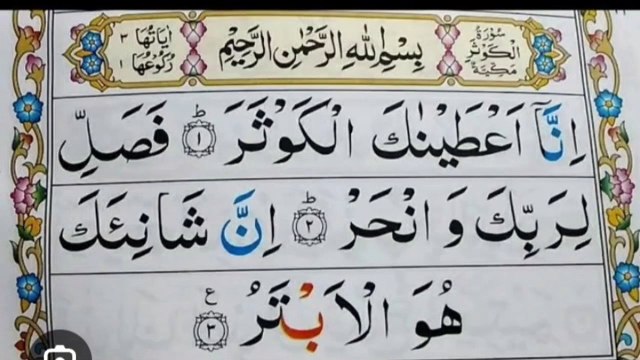 سُوْرَةُ الْكَوْثَرِ مَكِّيَّةٌ
بِسْمِ اللهِ الرَّحْمٰنِ الرَّحِيْمِ
اٰيَاتُهَا ٣ رُكُوْعُهَا ١
اِنَّاۤ اَعْطَيْنٰكَ الْكَوْثَرَ ؕ‏﴿۱﴾ فَصَلِّ
لِرَبِّكَ وَانْحَرْ ؕ‏﴿۲﴾ اِنَّ شَانِئَكَ
هُوَ الْاَبْتَرُ ﴿۳﴾ ع